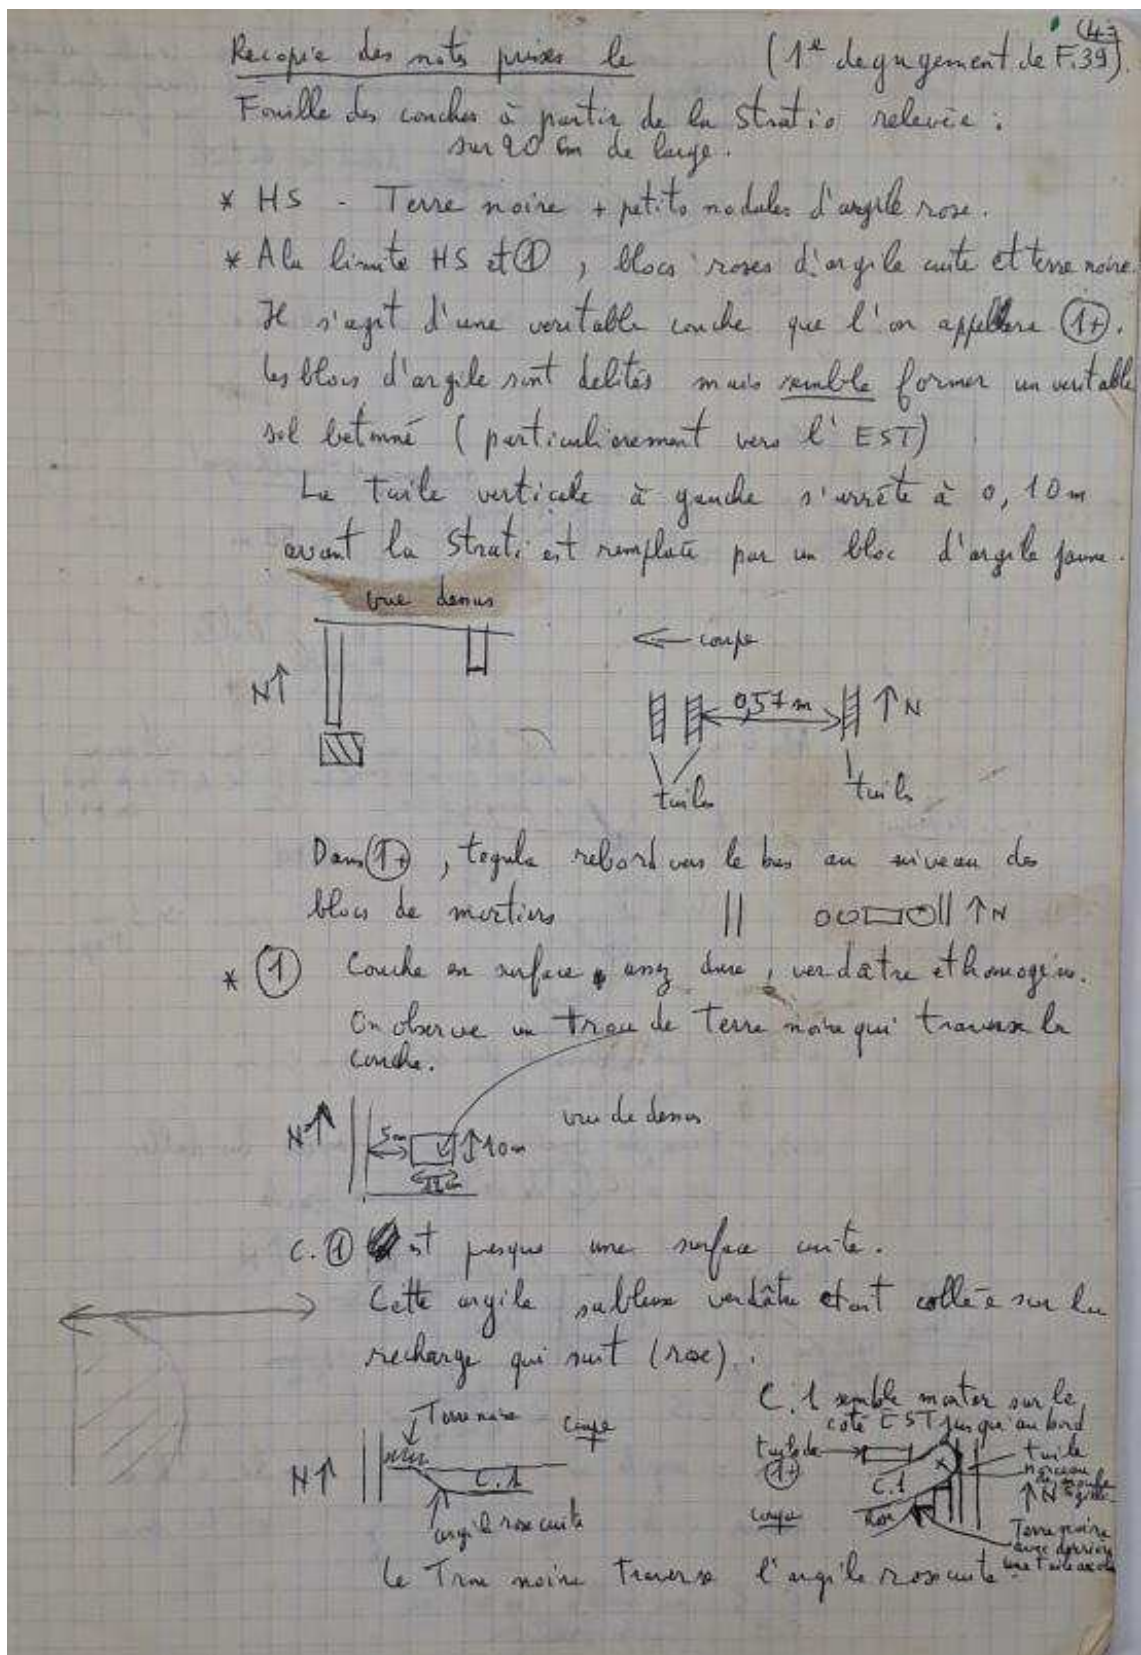 (43)
Recopie des nots prises le (1e degagement de F.39).
Fouille des couches à partir de la Stratio relevée :
sur 20 cm de large.
* HS - Terre noire + petits nodules d'argile rose.
* A la limite HS et ①, blocs roses d'argile cuite et terre noire.
Il s'agit d'une veritable couche que l'on appellera (1+).
les blocs d'argile sont delités mais semble former un veritable
sol betonné (particulierement vers l'EST)
La tuile verticale à gauche s'arrête à 0,10m
avant la Strati et remplacé par un bloc d'argile jaune.
vue dessus
← coupe
N↑
0,57m ↑N
tuiles tuile
Dans (1+), tegula rebord vers le bas au niveau des
blocs de mortiers ↑N
* ① Couche en surface assez dure, verdatre et homogène.
On observe un trou de terre noire qui traverse la
couche.
vue de dessus
N↑ 5cm 10cm
C.① est presque une surface cuite.
Cette argile sableuse verdâtre etait collée sur la
recharge qui suit (rose).
C.1 semble monter sur le
coté EST jusque au bord
Terre noire coupe
tuile de (1+)
tuile
morceau
N↑ C.1
C.1 ↑N
argile rose cuite
coupe rose
Terre noire
avec derriere
une tuile
Le Trou noire traverse l'argile rose cuite.